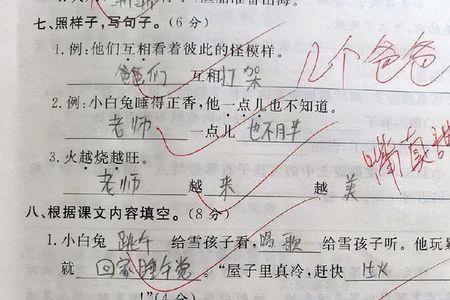 七、照样子,写句子。(6分)
1.例:他们互相看着彼此的怪模样。
爸爸们 互相打架 几个爸爸
2.例:小白兔睡得正香,他一点儿也不知道。
老师 一点儿 也不胖
3.火越烧越旺。 嘴真甜
老师 越 来 越 美
八、根据课文内容填空。(8分)
1.小白兔 跳午 给雪孩子看, 唱歌 给雪孩子听。他玩
就 回家睡午觉 。“屋子里真冷,赶快
!”(4分)